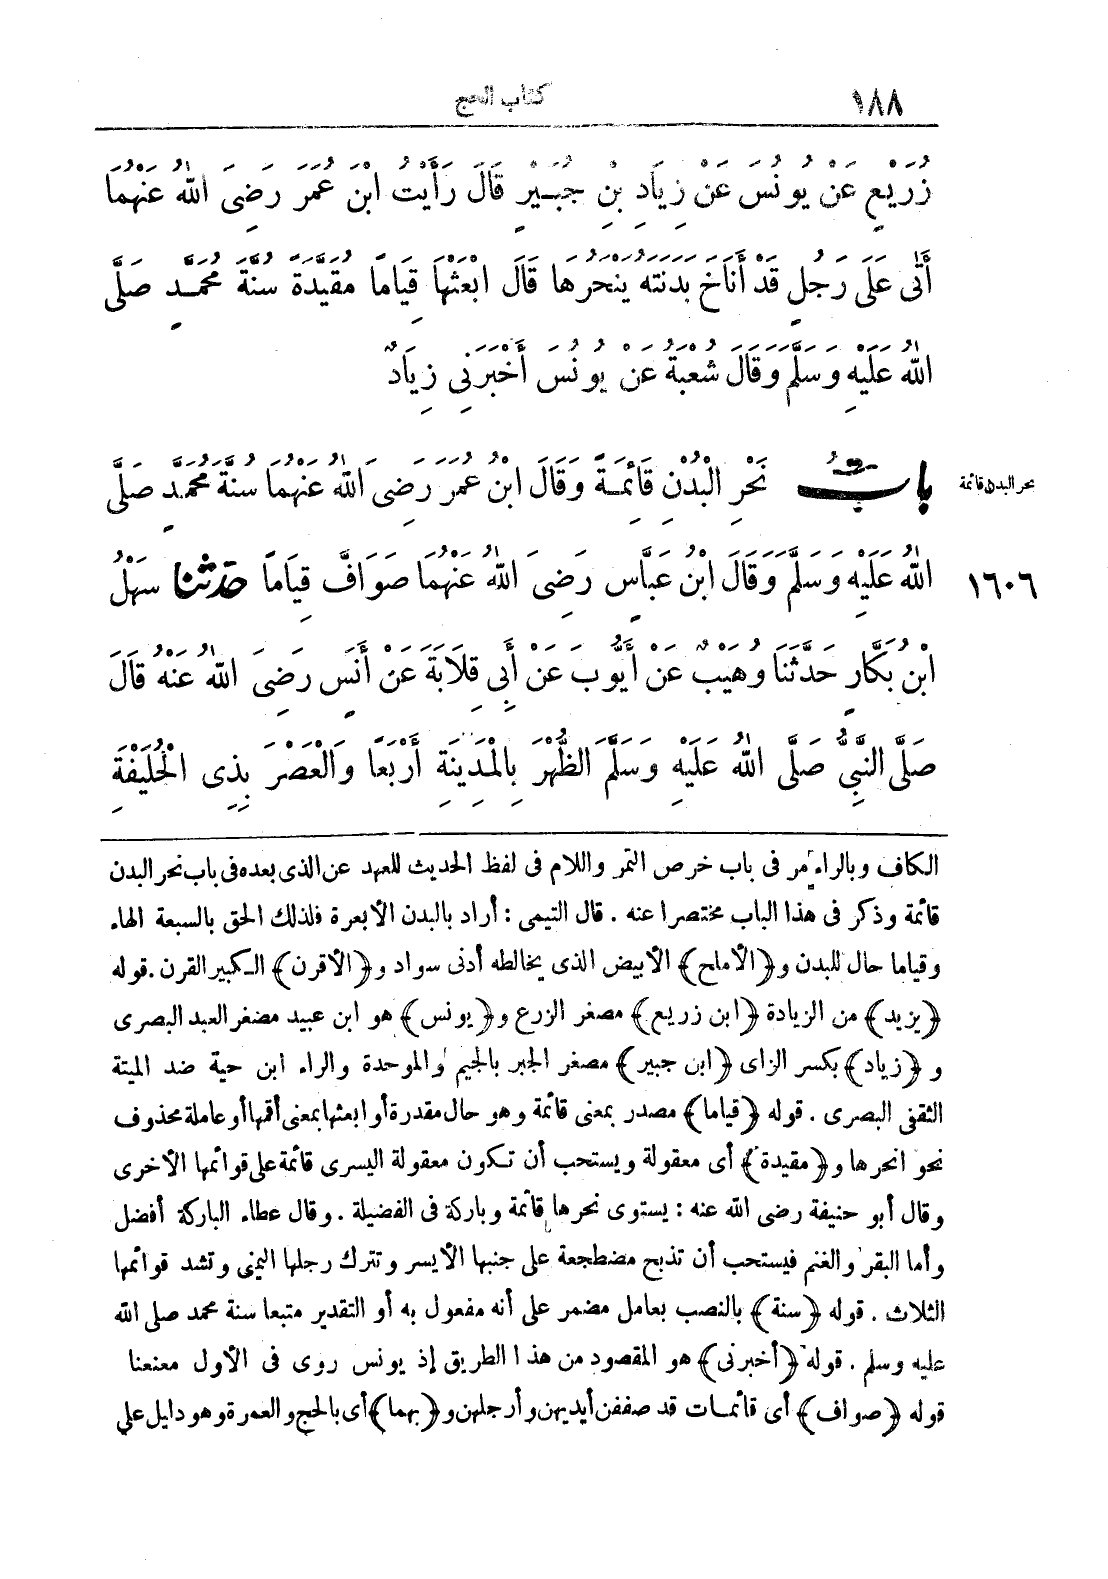 ١٨٨ كتاب الحج
زُرَيْعٍ عَنْ يُونُسَ عَنْ زِيَادِ بْنِ جُبَيْرٍ قَالَ رَأَيْتُ ابْنَ عُمَرَ رَضِىَ اللّٰهُ عَنْهُمَا
أَتَى عَلَى رَجُلٍ قَدْ أَنَاخَ بَدَنَتَهُ يَنْحَرُهَا قَالَ ابْعَثْهَا قِيَامًا مُقَيَّدَةً سُنَّةَ مُحَمَّدٍ صَلَّى
اللّٰهُ عَلَيْهِ وَسَلَّمَ وَقَالَ شُعْبَةُ عَنْ يُونُسَ أَخْبَرَنِى زِيَادٌ
بابُ نَحْرِ الْبُدْنِ قَائِمَةً وَقَالَ ابْنُ عُمَرَ رَضِىَ اللّٰهُ عَنْهُمَا سُنَّةَ مُحَمَّدٍ صَلَّى
نحر البدن قائمة
اللّٰهُ عَلَيْهِ وَسَلَّمَ وَقَالَ ابْنُ عَبَّاسٍ رَضِىَ اللّٰهُ عَنْهُمَا صَوَافَّ قِيَامًا حَدَّثَنَا سَهْلُ
١٦٠٦
ابْنُ بَكَّارٍ حَدَّثَنَا وُهَيْبٌ عَنْ أَيُّوبَ عَنْ أَبِى قِلَابَةَ عَنْ أَنَسٍ رَضِىَ اللّٰهُ عَنْهُ قَالَ
صَلَّى النَّبِىُّ صَلَّى اللّٰهُ عَلَيْهِ وَسَلَّمَ الظُّهْرَ بِالْمَدِينَةِ أَرْبَعًا وَالْعَصْرَ بِذِى الْحُلَيْفَةِ
الكاف وبالراء مر فى باب خرص التمر واللام فى لفظ الحديث للعهد عن الذى بعده فى باب نحر البدن
قائمة وذكر فى هذا الباب مختصرا عنه . قال التيمى : أراد بالبدن الأبعرة فلذلك الحق بالسبعة الهاء
وقياما حال للبدن و﴿الأملح﴾ الأبيض الذى يخالطه أدنى سواد و﴿الأقرن﴾ الكبير القرن . قوله
﴿يزيد﴾ من الزيادة ﴿ابن زريع﴾ مصغر الزرع و﴿يونس﴾ هو ابن عبيد مصغر العبد البصرى
و ﴿زياد﴾ بكسر الزاى ﴿ابن جبير﴾ مصغر الجبر بالجيم والموحدة والراء ابن حية ضد الميتة
الثقفى البصرى . قوله ﴿قياما﴾ مصدر بمعنى قائمة وهو حال مقدرة أو ابعثها بمعنى أقمها أو عاملة محذوف
نحو انحرها و﴿مقيدة﴾ أى معقولة ويستحب أن تكون معقولة اليسرى قائمة على قوائمها الأخرى
وقال أبو حنيفة رضى الله عنه : يستوى نحرها قائمة وباركة فى الفضيلة . وقال عطاء الباركة أفضل
وأما البقر والغنم فيستحب أن تذبح مضطجعة على جنبها الأيسر وتترك رجلها اليمنى وتشد قوائمها
الثلاث . قوله ﴿سنة﴾ بالنصب بعامل مضمر على أنه مفعول به أو التقدير متبعا سنة محمد صلى الله
عليه وسلم . قوله ﴿أخبرنى﴾ هو المقصود من هذا الطريق إذ يونس روى فى الأول معنعنا
قوله ﴿صواف﴾ أى قائمات قد صففن أيديهن وأرجلهن و﴿بهما﴾ أى بالحج والعمرة وهو دليل على